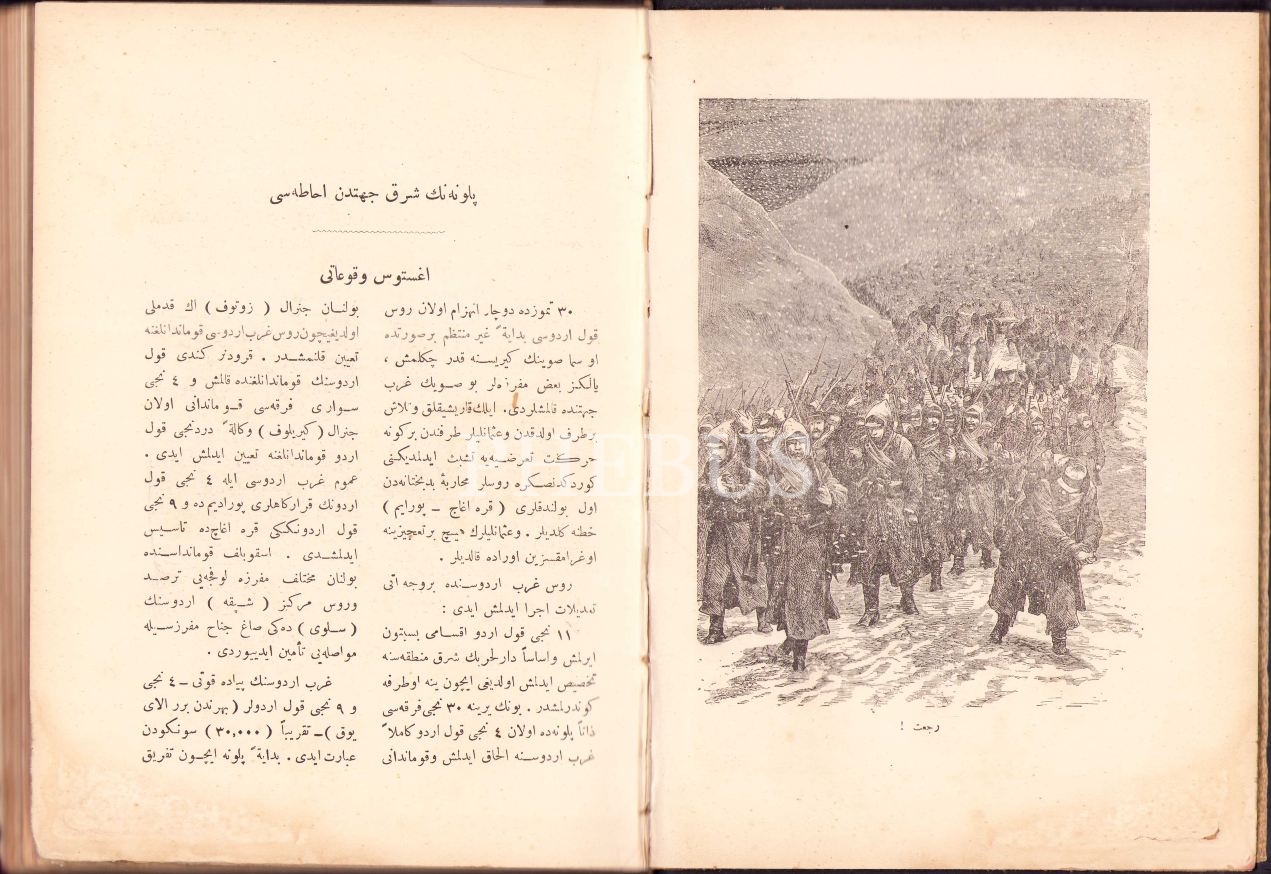 پلونه‌نك شرق جهتدن احاطه‌سی
اغستوس وقوعاتی
٣٠ تموزده دوچار انهزام اولان روس
قول اردوسی بدایةً غیر منتظم برصورتده
او سما صوینك كیریسنه قدر چكلمش ،
یالكز بعض مفرزه‌لر بو صویك غرب
جهتنده قالمشلردی. ایلك قاریشیقلق وتلاش
برطرف اولدقدن وعثمانلیلر طرفندن بركونه
حركت تعرضیه‌یه تشبث ایدلمدیكنی
كوردكدنصكره روسلر محاربۀ بدبختانه‌دن
اول بولندقلری ( قره اغاج – پورایم )
خطنه كلدیلر . وعثمانلیلرك هیچ برتعجیزینه
اوغرامقسزین اوراده قالدیلر .
روس غرب اردوسنده بروجه آتی
تعدیلات اجرا ایدلمش ایدی :
١١ نجی قول اردو اقسامی بسبتون
ایرلمش واساساً دارالحربك شرق منطقه‌سنه
تخصیص ایدلمش اولدیغی ایچون ینه اوطرفه
كوندرلمشدر . بونك یرینه ٣٠ نجی فرقه‌سی
ذاتاً پلونه‌ده اولان ٤ نجی قول اردو كاملاً
غرب اردوسنه الحاق ایدلمش وقوماندانی
بولنان جنرال ( زوتوف ) اك قدملی
اولدیغیچون روس غرب اردوسی قوماندانلغنه
تعیین قلنمشدر . قرودنر كندی قول
اردوسنك قوماندانلغنده قالمش و ٤ نجی
سواری فرقه‌سی قوماندانی اولان
جنرال ( كیریلوف ) وكالةً دردنجی قول
اردو قوماندانلغنه تعیین ایدلمش ایدی .
عموم غرب اردوسی ایله ٤ نجی قول
اردونك قراركاهلری پورادیم ده و ٩ نجی
قول اردونككی قره اغاچ‌ده تاسیس
ایدلمشدی . اسقوبلف قومانداسنده
بولنان مختلف مفرزه لوفچه‌یی ترصد
وروس مركز ( شپقه ) اردوسنك
( سلوی ) ده‌كی صاغ جناح مفرزسیله
مواصله‌یی تأمین ایدییوردی .
غرب اردوسنك پیاده قوتی – ٤ نجی
و ٩ نجی قول اردولر ( بهرندن برر الای
یوق ) – تقریباً ( ٣٠,٠٠٠ ) سونكودن
عبارت ایدی . بدایةً پلونه ایچون تفریق
رجعت !
PHEBUS